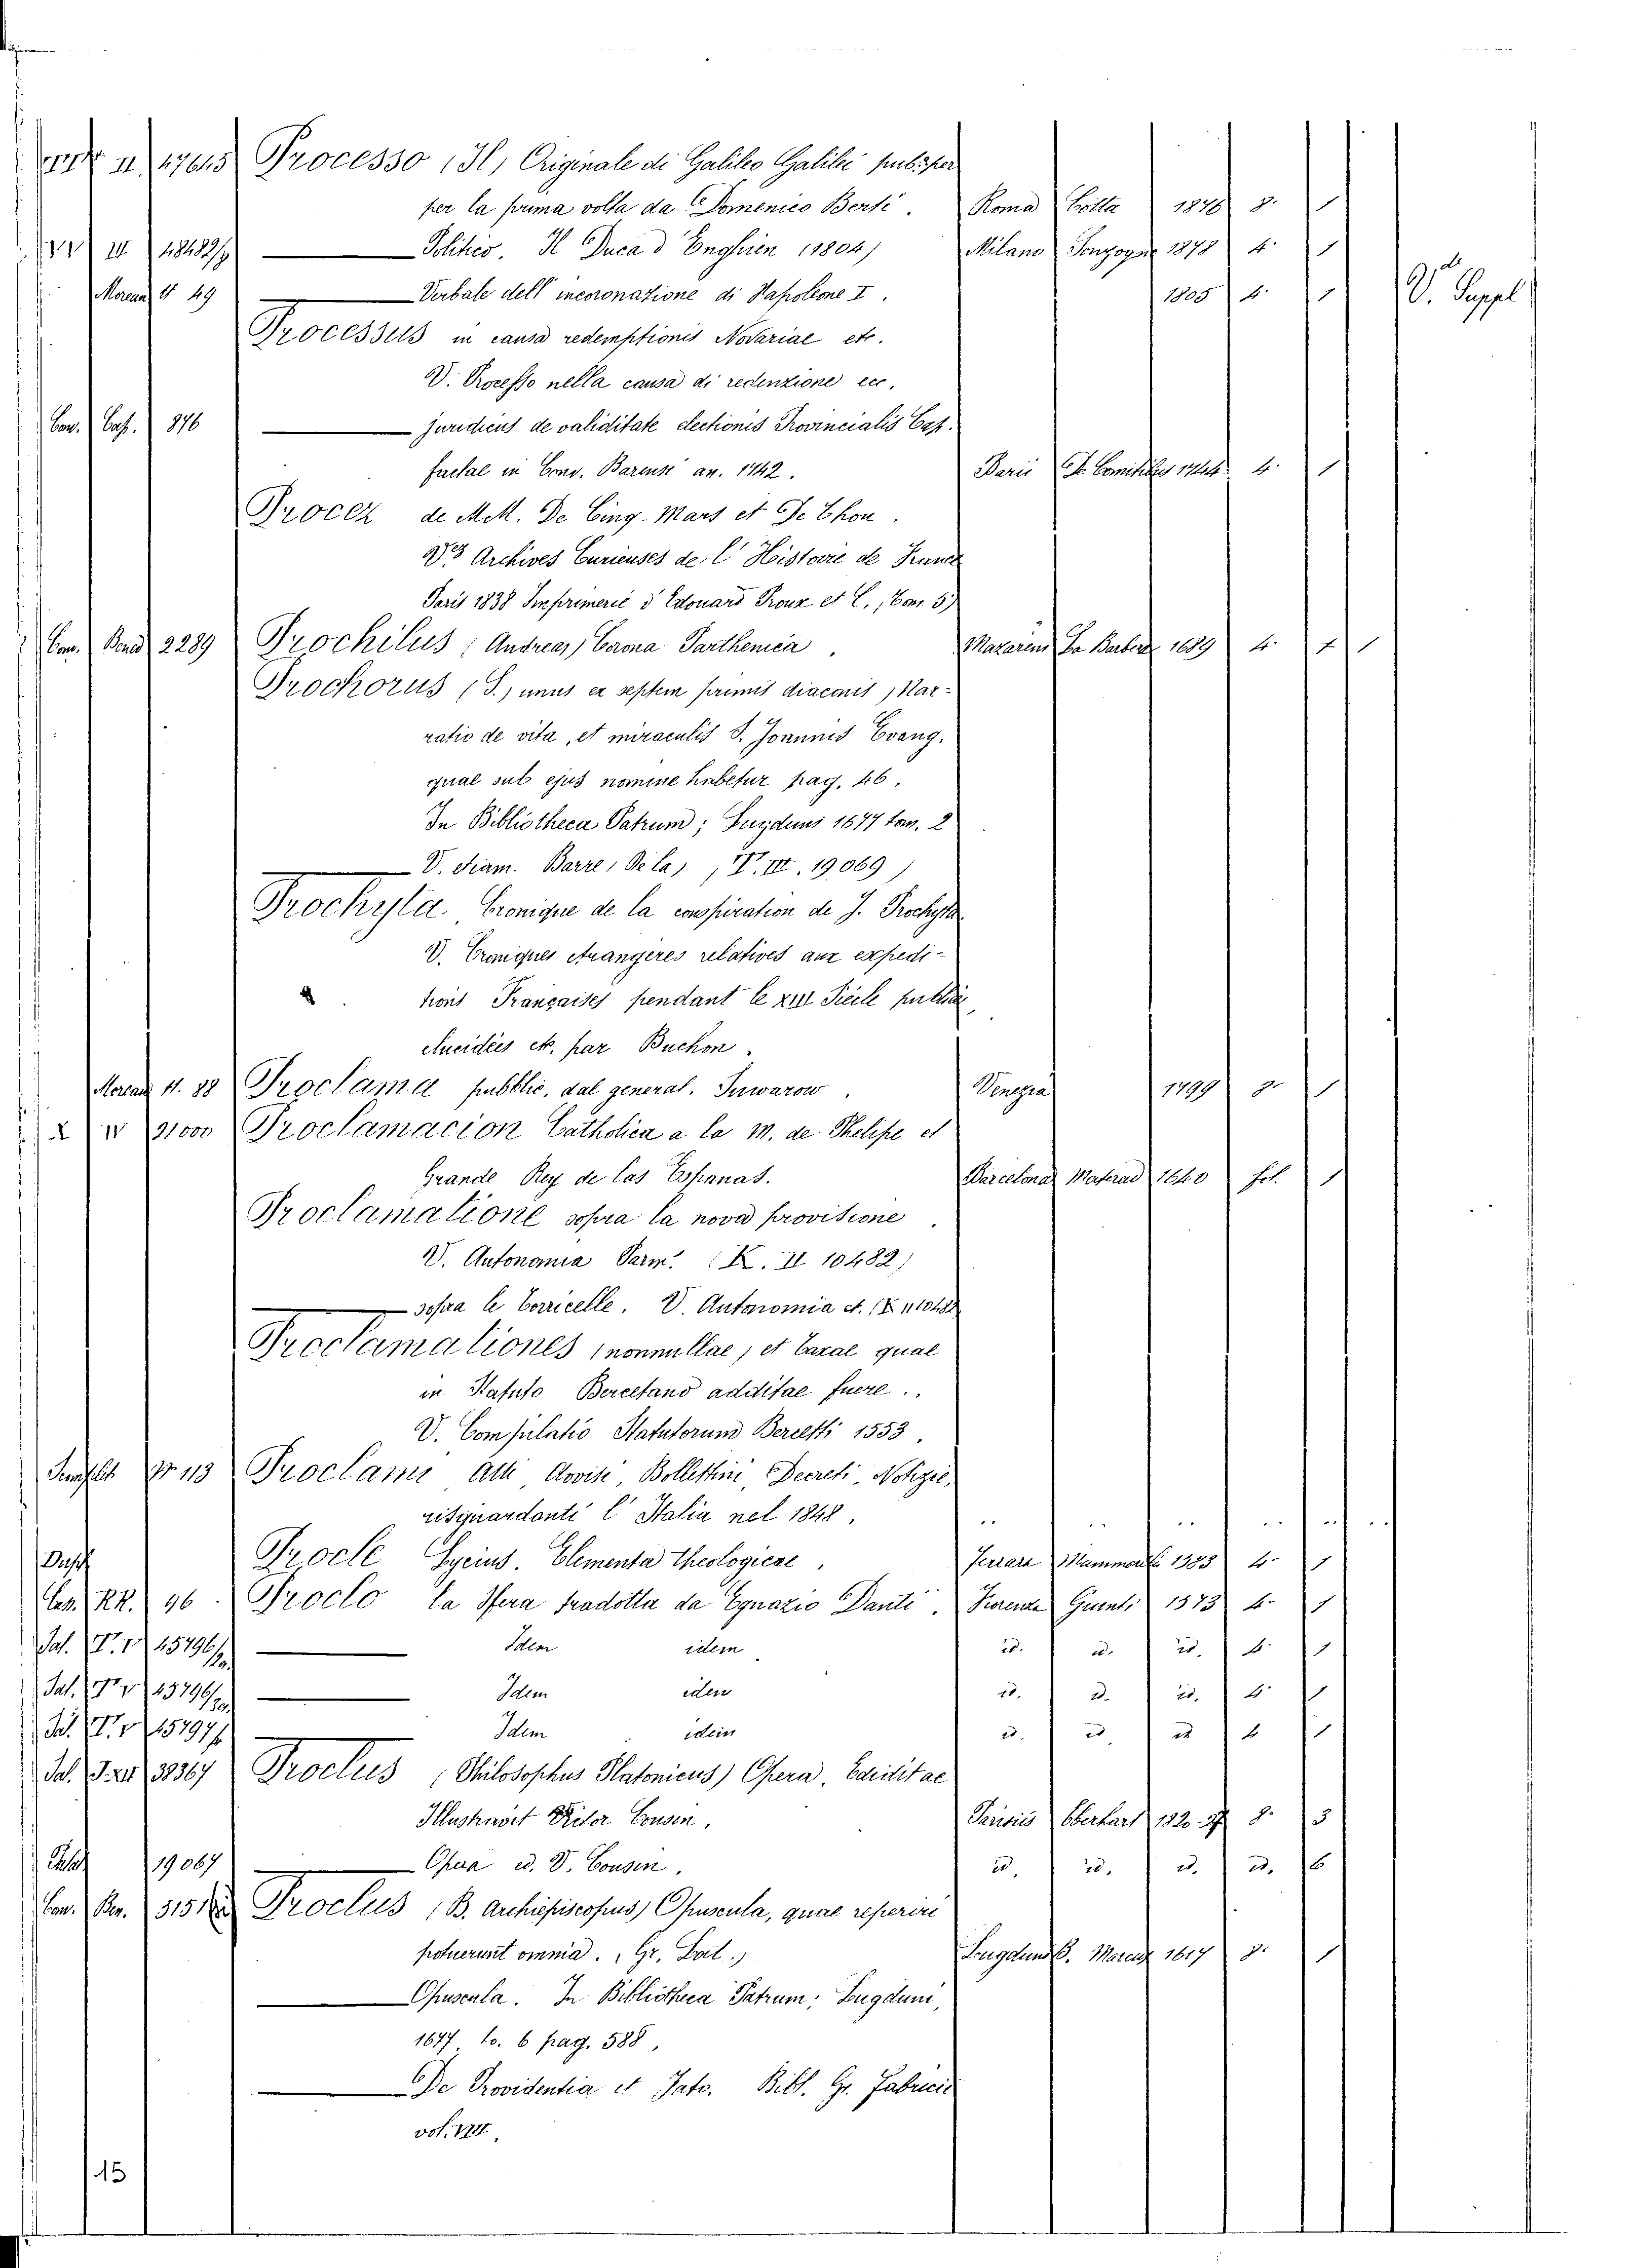 II 47645 Processo (Il) Originale di Galileo Galilei pub. per
per la prima volta da Domenico Berti. Roma Cotta 1876 8. 1
III 48482/9 Politico. Il Duca d'Enghien (1804) Milano Sonzogno 1878 4. 1
Moreau 4 49 Verbale dell'incoronazione di Napoleone I. 1805 4. 1 V. Suppl
Processus in causa redemptionis Novariae etc.
V. Processo nella causa di redenzione ecc.
Con. Cap. 876 juridicus de validitate electionis Provincialis Cap.
factae in Conv. Barense an. 1742. Barii 4. 1
Procez de MM. De Cinq-Mars et De Thou.
V. Archives Curieuses de l'Histoire de France
Paris 1838 Imprimerie d'Edouard Proux et C., Tom. 5)
Con. Bened 2289 Prochilus (Andreas) Corona Parthenica. Mazarens La Barbera 1689 4. 1 1
Prochorus (S.) unus ex septem primis diaconis, Nar-
ratio de vita, et miraculis S. Joannis Evang.
quae sub ejus nomine habetur pag. 46.
In Bibliotheca Patrum; Lugduni 1677 tom. 2
V. etiam Barre, De la, (T. III. 19069)
Prochyta Cronique de la conspiration de J. Prochyta
V. Croniques étrangères relatives aux expedi-
tions Françaises pendant le XIII Siècle publiée,
élucidées etc. par Buchon.
Moreau 11. 88 Proclama pubblic. dal general. Suwarow. Venezia 1799 8. 1
X IV 21000 Proclamacion Catholica a la M. de Phelipe el
Grande Rey de las Espanas. Barcelona Matevad 1640 fol. 1
Proclamatione sopra la nova provisione
V. Autonomia Parm. (X. II 10482)
sopra le Corricelle. V. Autonomia et. (X II 10482
Proclamationes (nonnullae, et taxae quae
in Statuto Bercetano additae fuere..
V. Compilatio Statutorum Berceti 1553.
113 Proclami Atti Avvisi, Bollettini, Decreti, Notizie,
risguardanti l'Italia nel 1848.
Dupl Procle Lycius. Elementa theologicae. Ferrara Mammarelli 1583 4. 1
Cen. RR. 96 Proclo la Sfera tradotta da Egnazio Danti. Fiorenza Giunti 1573 4. 1
Pal. V. V 45796/29 Idem idem id. id. id. 4. 1
Pal. V. V 45796/30 Idem idem id. id. id. 4. 1
Pal. V. V 45797/1 Idem idem id. id. id. 4. 1
Pal. 38367 Proclus (Philosophus Platonicus) Opera. Edidit ac
Illustravit Victor Cousin. Parisiis Eberhart 1820-27 8. 3
19067 Opera ed. V. Cousin. id. id. id. id. 6
Con. Ben. 515 Proclus (B. Archiepiscopus) Opuscula, quae reperiri
potuerunt omnia. (Gr. Lat.) Lugduni B. Marcus 1617 8. 1
Opuscula. In Bibliotheca Patrum; Lugduni,
1677. to. 6 pag. 588.
De Providentia et Fato. Bibl. Gr. Fabricii
vol. VIII.
15